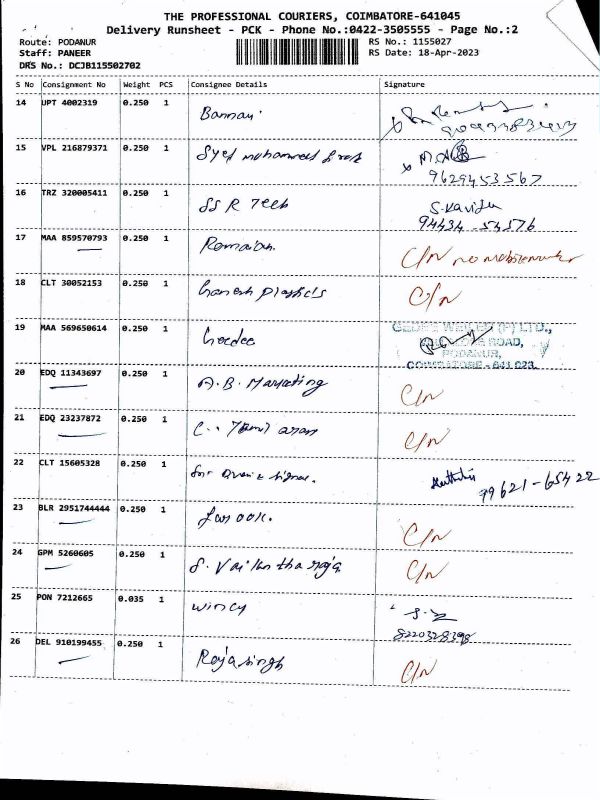 THE PROFESSIONAL COURIERS, COIMBATORE-641045
Delivery Runsheet - PCK - Phone No.:0422-3505555 - Page No.:2
Route: PODANUR
Staff: PANEER
DRS No.: DCJB115502702
RS No.: 1155027
RS Date: 18-Apr-2023
S No Consignment No Weight PCS Consignee Details Signature
14 UPT 4002319 0.250 1 Bannari
15 VPL 216879371 0.250 1 Syed mohammed
9629453567
16 TRZ 320005411 0.250 1 SS R Tech S.Kavitha
94434-54576
17 MAA 859570793 0.250 1 C/N no
18 CLT 30052153 0.250 1 Ganesh Plastics C/N
19 MAA 569650614 0.250 1 Geedee GEDEE WEILER (P) LTD.,
ROAD,
PODANUR,
COIMBATORE - 641 023.
20 EDQ 11343697 0.250 1 A.B. Marketing C/N
21 EDQ 23237872 0.250 1 C. C/N
22 CLT 15605328 0.250 1 79621-65422
23 BLR 2951744444 0.250 1 Farook. C/N
24 GPM 5260605 0.250 1 S. C/N
25 PON 7212665 0.035 1 Wincy
8220328398
26 DEL 910199455 0.250 1 Rajasingh C/N